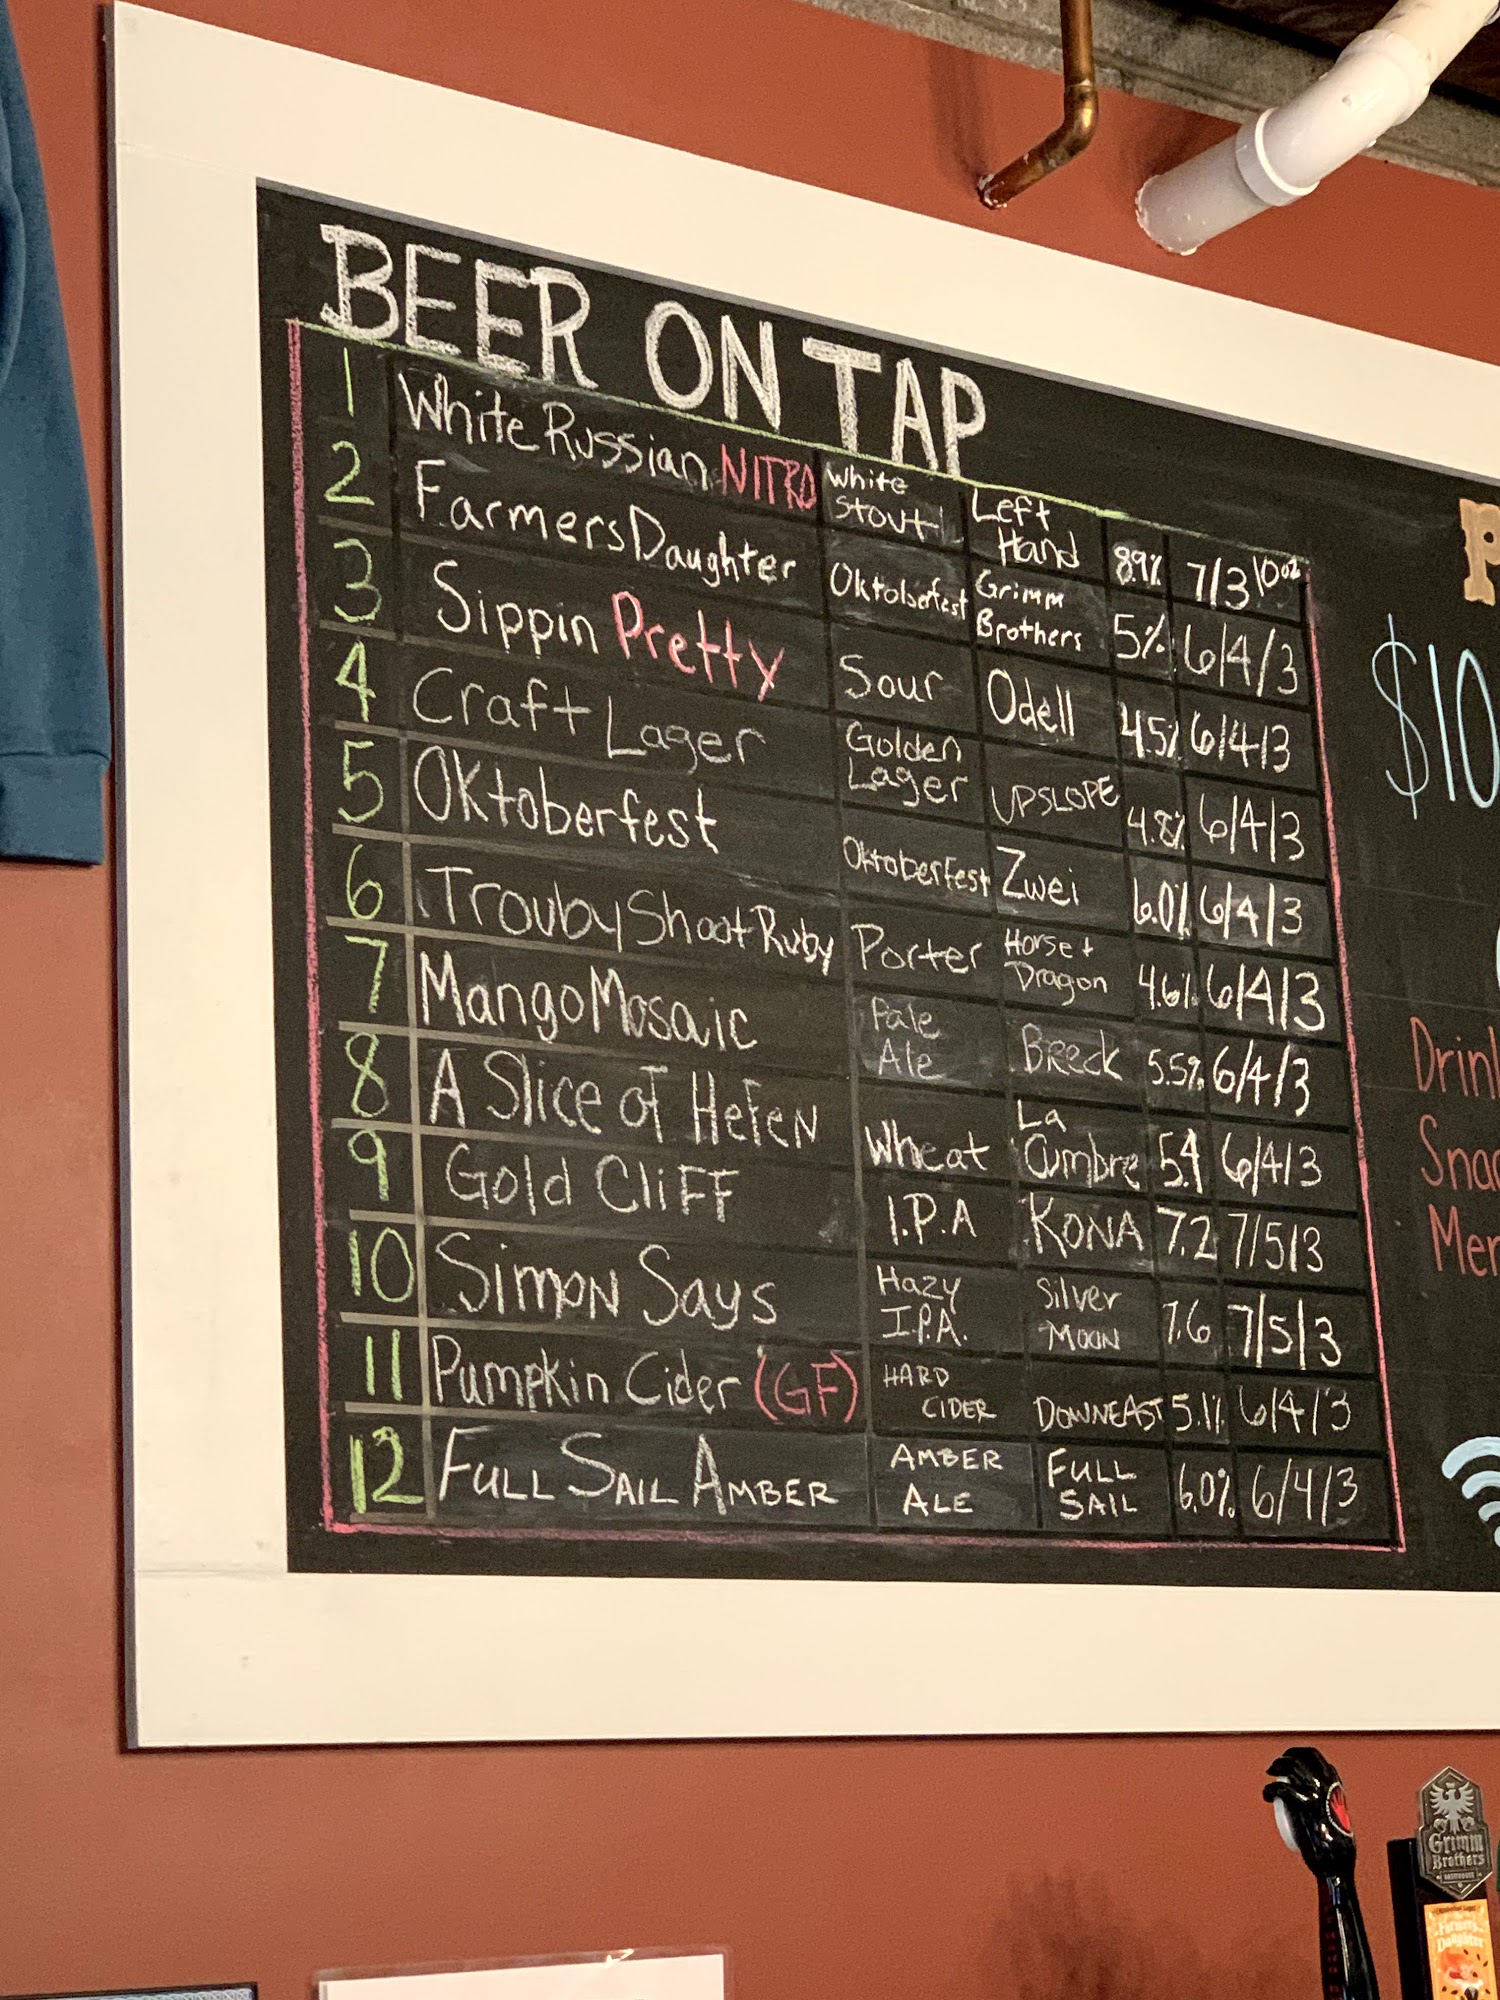 BEER ON TAP
1 White Russian NITRO White Stout Left Hand 8.9% 7/3 10oz
2 Farmers Daughter Oktoberfest Grimm Brothers 5% 6/4/3
3 Sippin Pretty Sour Odell 4.5% 6/4/3
4 Craft Lager Golden Lager UPSLOPE 4.8% 6/4/3
5 Oktoberfest Oktoberfest Zwei 6.0% 6/4/3
6 Trouby Shoot Ruby Porter Horse + Dragon 4.6% 6/4/3
7 Mango Mosaic Pale Ale Breck 5.5% 6/4/3
8 A Slice of Hefen Wheat La Cumbre 5.4 6/4/3
9 Gold Cliff I.P.A KONA 7.2 7/5/3
10 Simon Says Hazy I.P.A. Silver Moon 7.6 7/5/3
11 Pumpkin Cider (GF) HARD CIDER DOWNEAST 5.1% 6/4/3
12 FULL SAIL AMBER AMBER ALE FULL SAIL 6.0% 6/4/3
$10
Grimm
Brothers
Farmers
Daughter